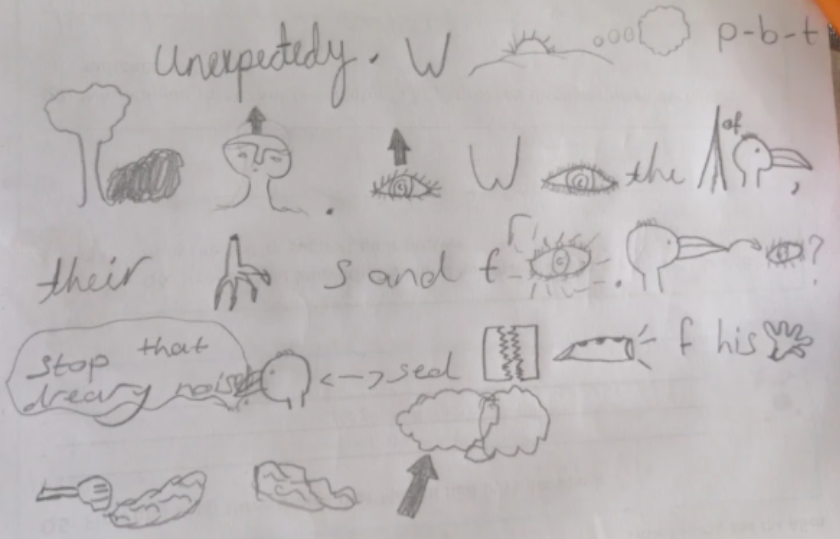 Unexpectedy. W p-b-t
. W the of ,
their s and f . ?
stop that
dreary noise
<-> sed f his